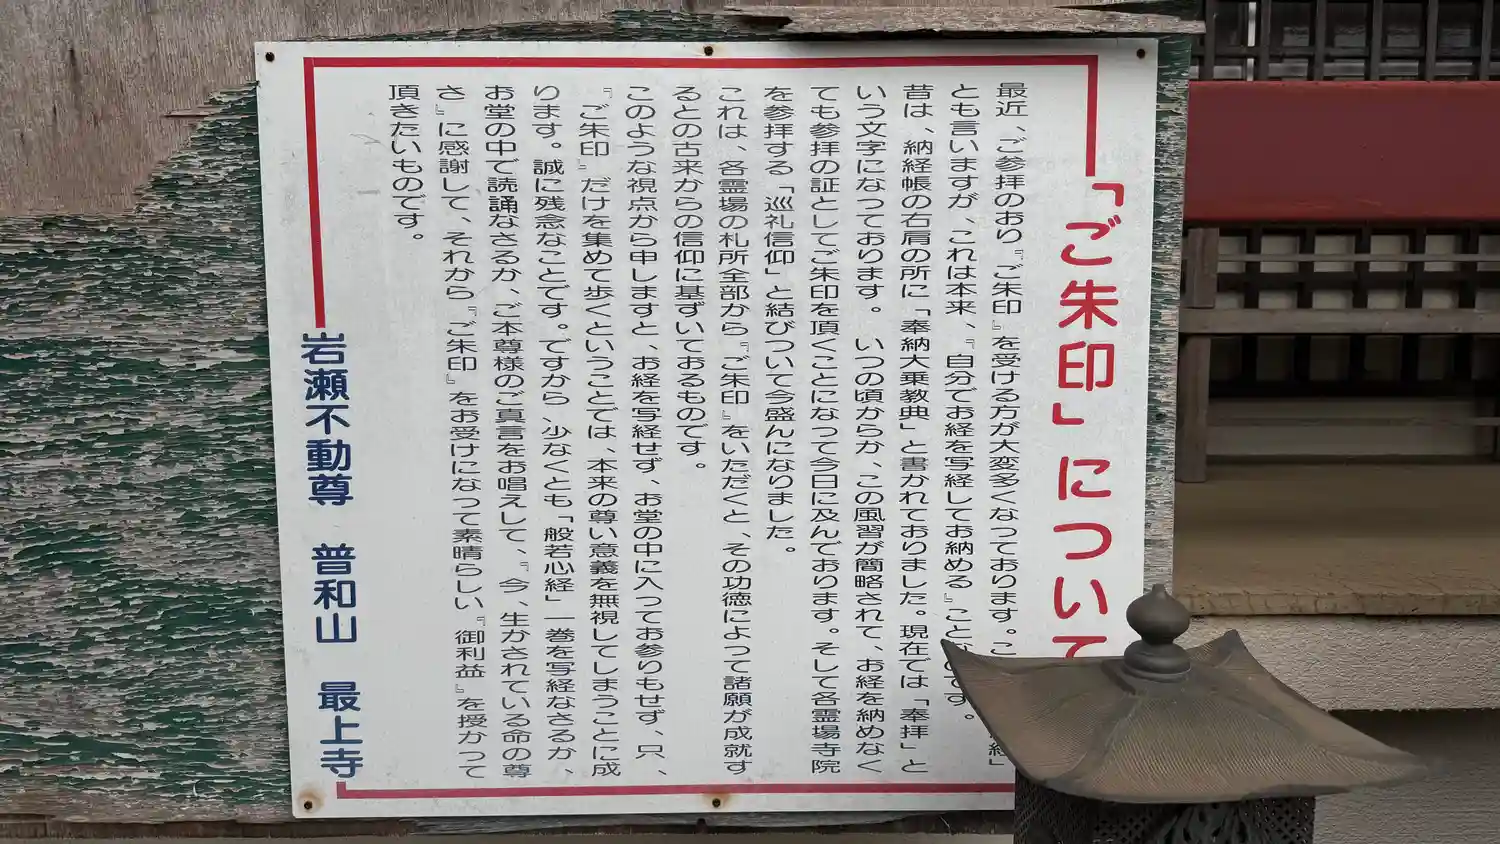 「ご朱印」について
最近、ご参拝のおり『ご朱印』を受ける方が大変多くなっております。こ
とも言いますが、これは本来、『自分でお経を写経してお納める』ことなのです。
昔は、納経帳の右肩の所に「奉納大乗教典」と書かれておりました。現在では「奉拝」と
いう文字になっております。いつの頃からか、この風習が簡略されて、お経を納めなく
ても参拝の証としてご朱印を頂くことになって今日に及んでおります。そして各霊場寺院
を参拝する「巡礼信仰」と結びついて今盛んになりました。
これは、各霊場の札所全部から『ご朱印』をいただくと、その功徳によって諸願が成就す
るとの古来からの信仰に基ずいておるものです。
このような視点から申しますと、お経を写経せず、お堂の中に入ってお参りもせず、只、
『ご朱印』だけを集めて歩くということでは、本来の尊い意義を無視してしまうことに成
ります。誠に残念なことです。ですから、少なくとも「般若心経」一巻を写経なさるか、
お堂の中で読誦なさるか、ご本尊様のご真言をお唱えして、『今、生かされている命の尊
さ』に感謝して、それから『ご朱印』をお受けになって素晴らしい『御利益』を授かって
頂きたいものです。
岩瀬不動尊　普和山　最上寺